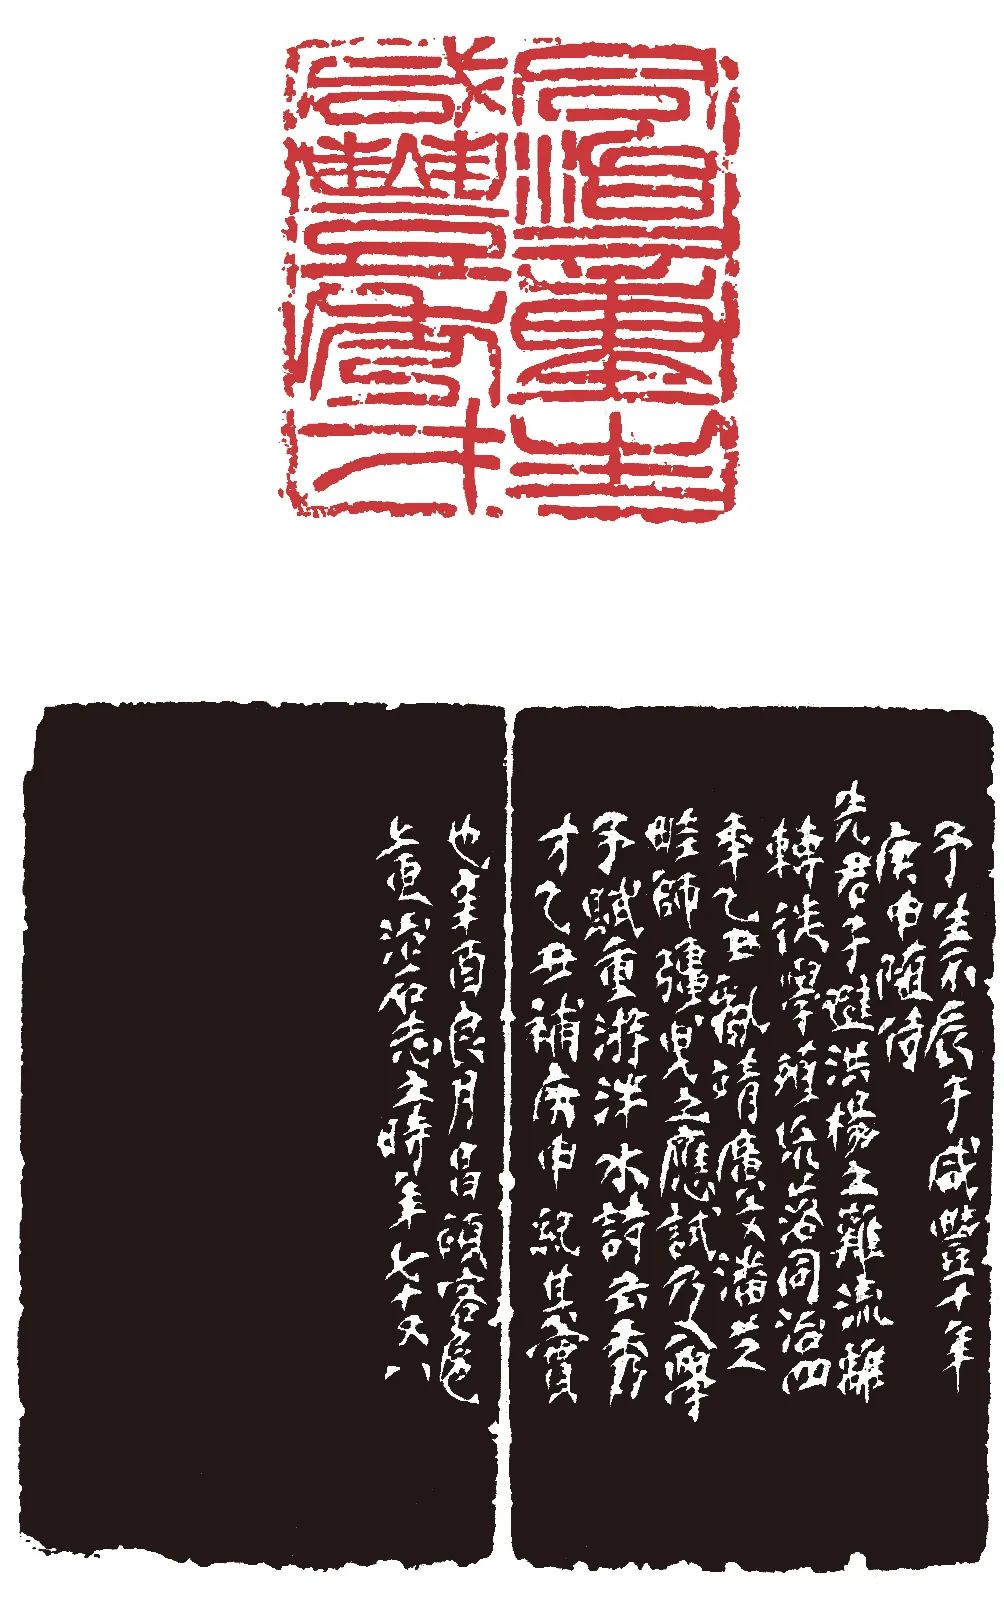 同治童生
咸豐秀才
予生不辰于咸豐十年
庚申随侍
先君子避洪楊之難流離
轉徙學殖荒落同治四
年乙丑亂靖廣文潘芝
畦師彊曳之應試乃入學
予賦重游泮水詩云秀
才乙丑補庚申紀其實
也辛酉良月昌碩客扈
上亟治石志之時年七十又八